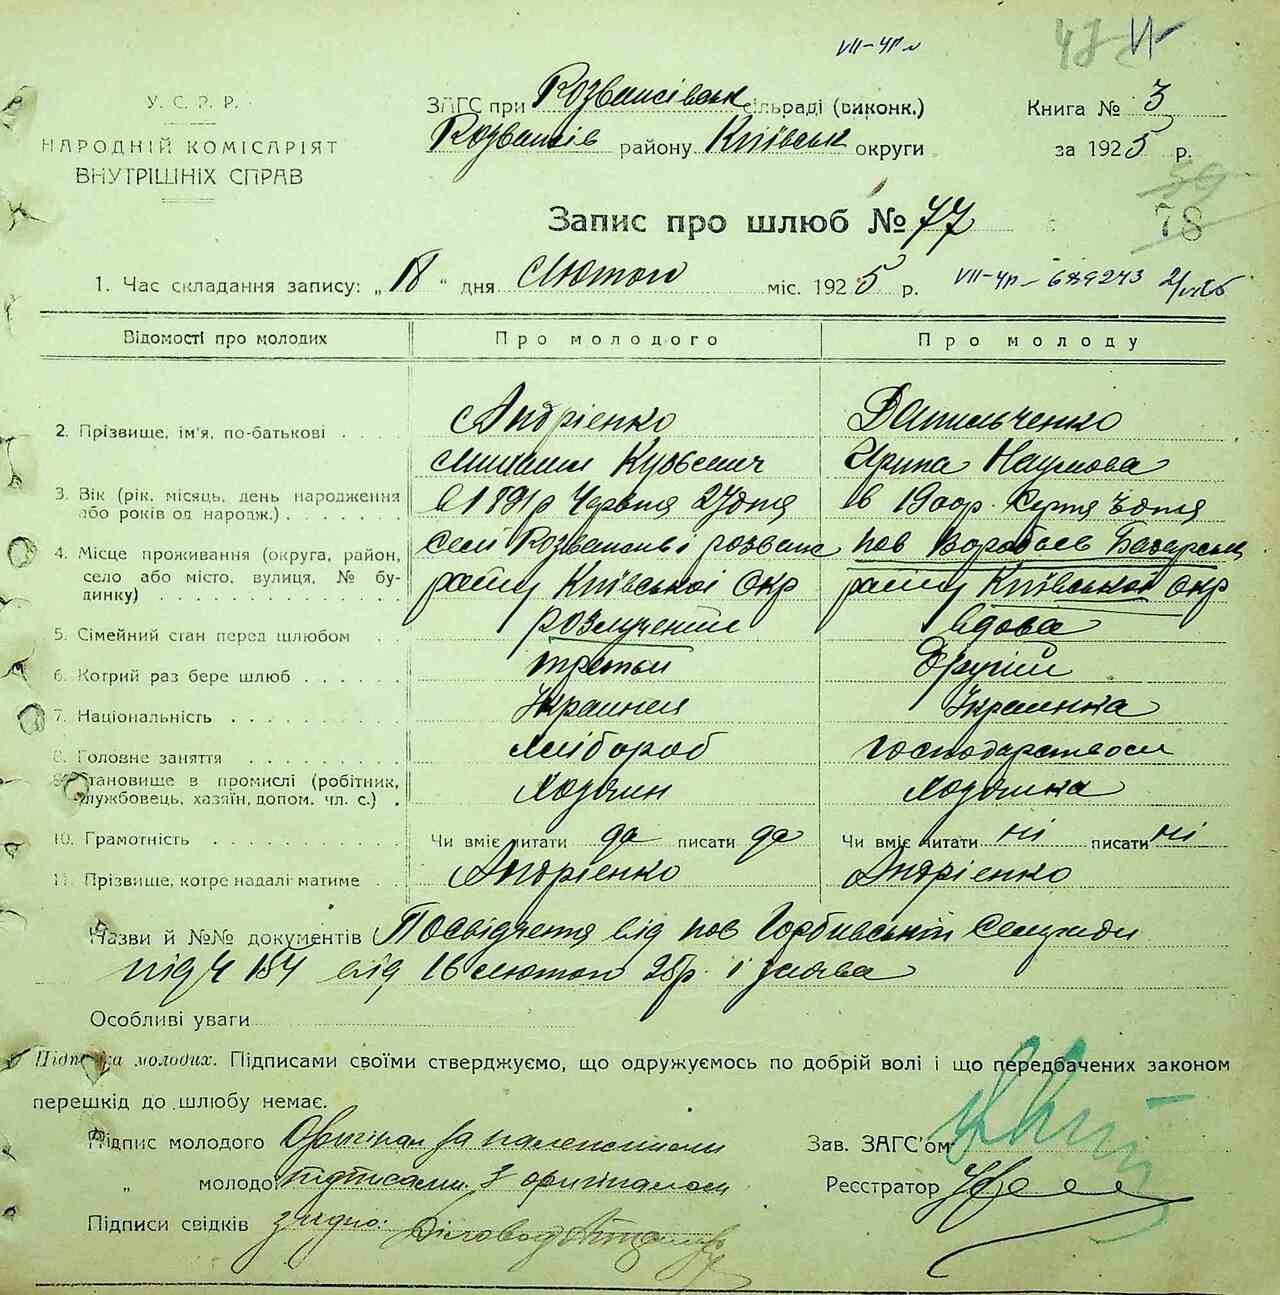 VII-чп
У. С. Р. Р.
НАРОДНІЙ КОМІСАРІЯТ
ВНУТРІШНІХ СПРАВ
ЗАГС при Розважівськ сільраді (виконк.)
Розважів району Київськ округи
Книга № 3
за 1925 р.
Запис про шлюб № 77
39
78
1. Час складання запису: „18" дня лютого міс. 1925 р.
VII-чп-689243
Відомості про молодих
Про молодого
Про молоду
2. Прізвище, ім'я, по-батькові
Андрієнко
Михаил Кузьмич
Данильченко
Ирина Наумова
3. Вік (рік, місяць, день народження або років од народж.)
в 1891 р Червня 27 дня
в 1900р. дня
4. Місце проживання (округа, район, село або місто, вулиця, № будинку)
селі Розважеві розваж
райну Київської Окр
пов Воробьев Базарськ
райну Київської Окр
5. Сімейний стан перед шлюбом
розлучений
вдова
6. Котрий раз бере шлюб
третьи
другій
7. Національність
Украинец
Украинка
8. Головне заняття
хлібороб
господарством
9. Становище в промислі (робітник, службовець, хазяїн, допом. чл. с.)
Хозяин
Хозяика
10. Грамотність
Чи вміє читати да писати да
Чи вміє читати ні писати ні
11. Прізвище, котре надалі матиме
Андрієнко
Андрієнко
Назви й №№ документів Посвідчення від пов Горбивській Сельради
під ч 154 від 16 лютого 25р. і заява
Особливі уваги
Підписка молодих. Підписами своїми стверджуємо, що одружуємось по добрій волі і що передбачених законом
перешкід до шлюбу немає.
Підпис молодого Оригінал за належними
„ молодої підписами. З оригіналом
Підписи свідків згідно: Діловод
Зав. ЗАГС'ом
Реєстратор